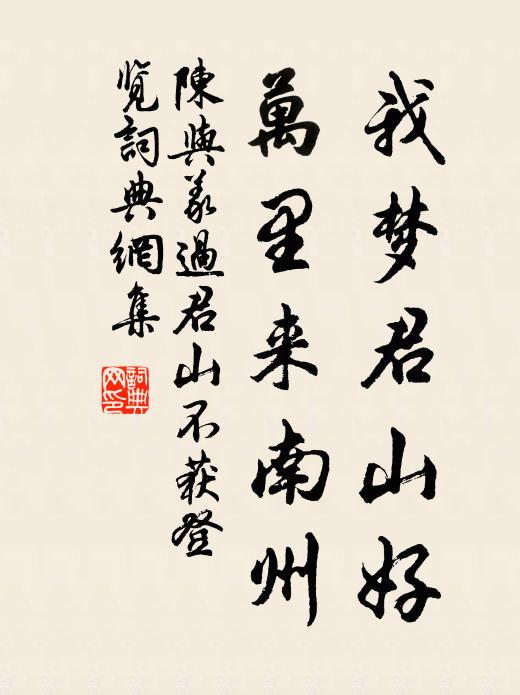 我梦君山好
萬里来南州
陳與義過君山不获登
览詞典網集
詞典网印